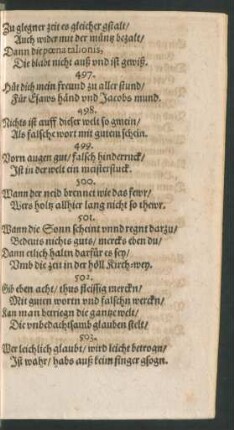 Zu glegner zeit es gleicher gstalt/
Auch wider mit der müntz bezalt/
Dann die pœna talionis,
Die blabt nicht auß vnd ist gewiß.
497.
Hüt dich mein freund zu aller stund/
Für Esaws händ vnd Jacobs mund.
498.
Nichts ist auff dieser welt so gmein/
Als falsche wort mit gutem schein.
499.
Vorn augen gut/ falsch hinderruck/
Ist in der welt ein meisterstuck.
500.
Wann der neid brennet wie das fewr/
Wers holtz allhier lang nicht so thewr.
501.
Wann die Sonn scheint vnnd regnt darzu/
Bedeuts nichts guts/ mercks eben du/
Dann etlich halten darfür es sey/
Vmb die zeit in der höll Kirchwey.
502.
Gib eben acht/ thus fleissig mercken/
Mit guten wortn vnd falschn wercken/
Kan man betriegn die gantze welt/
Die vnbedachtsamb glauben stelt/
503.
Wer leichlich glaubt/ wird leicht betrogn/
Ist wahr/ habs auß keim finger gsogn.